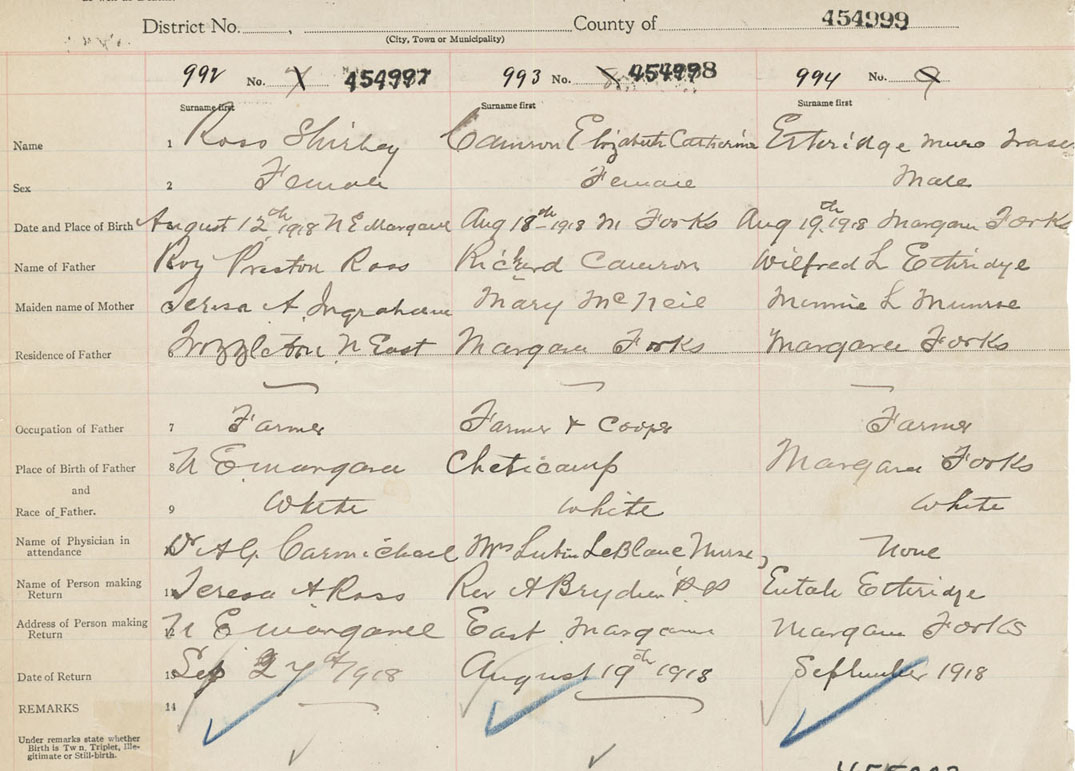 District No. , County of 454999
(City, Town or Municipality)
992 No. X 454997 993 No. 454998 994 No. 9
Surname first Surname first Surname first
Name 1 Ross Shirley Camron Elizabeth Catherine Etheridge Muro Fraser
Sex 2 Female Female Male
Date and Place of Birth August 12th 1918 N E Margaree Aug 18th 1918 M Forks Aug 19th 1918 Margaree Forks
Name of Father Roy Preston Ross Rickard Camron Wilfred L Etheridge
Maiden name of Mother Teresa A. Ingraham Mary McNeil Minnie L Munroe
Residence of Father 6 N East Margaree Forks Margaree Forks
Occupation of Father 7 Farmer Farmer & Cooper Farmer
Place of Birth of Father 8 N E Margaree Cheticamp Margaree Forks
and
Race of Father. 9 White White White
Name of Physician in Dr A G Carmichael Mrs Lubin LeBlanc Nurse, None
attendance
Name of Person making 11 Teresa A Ross Rev A Bryden P.P Etheridge
Return
Address of Person making N E Margaree East Margaree Margaree Forks
Return
Date of Return 13 Sep 27th 1918 August 19th 1918 September 1918
REMARKS 14
Under remarks state whether
Birth is Tw n, Triplet, Ille-
gitimate or Still-birth.